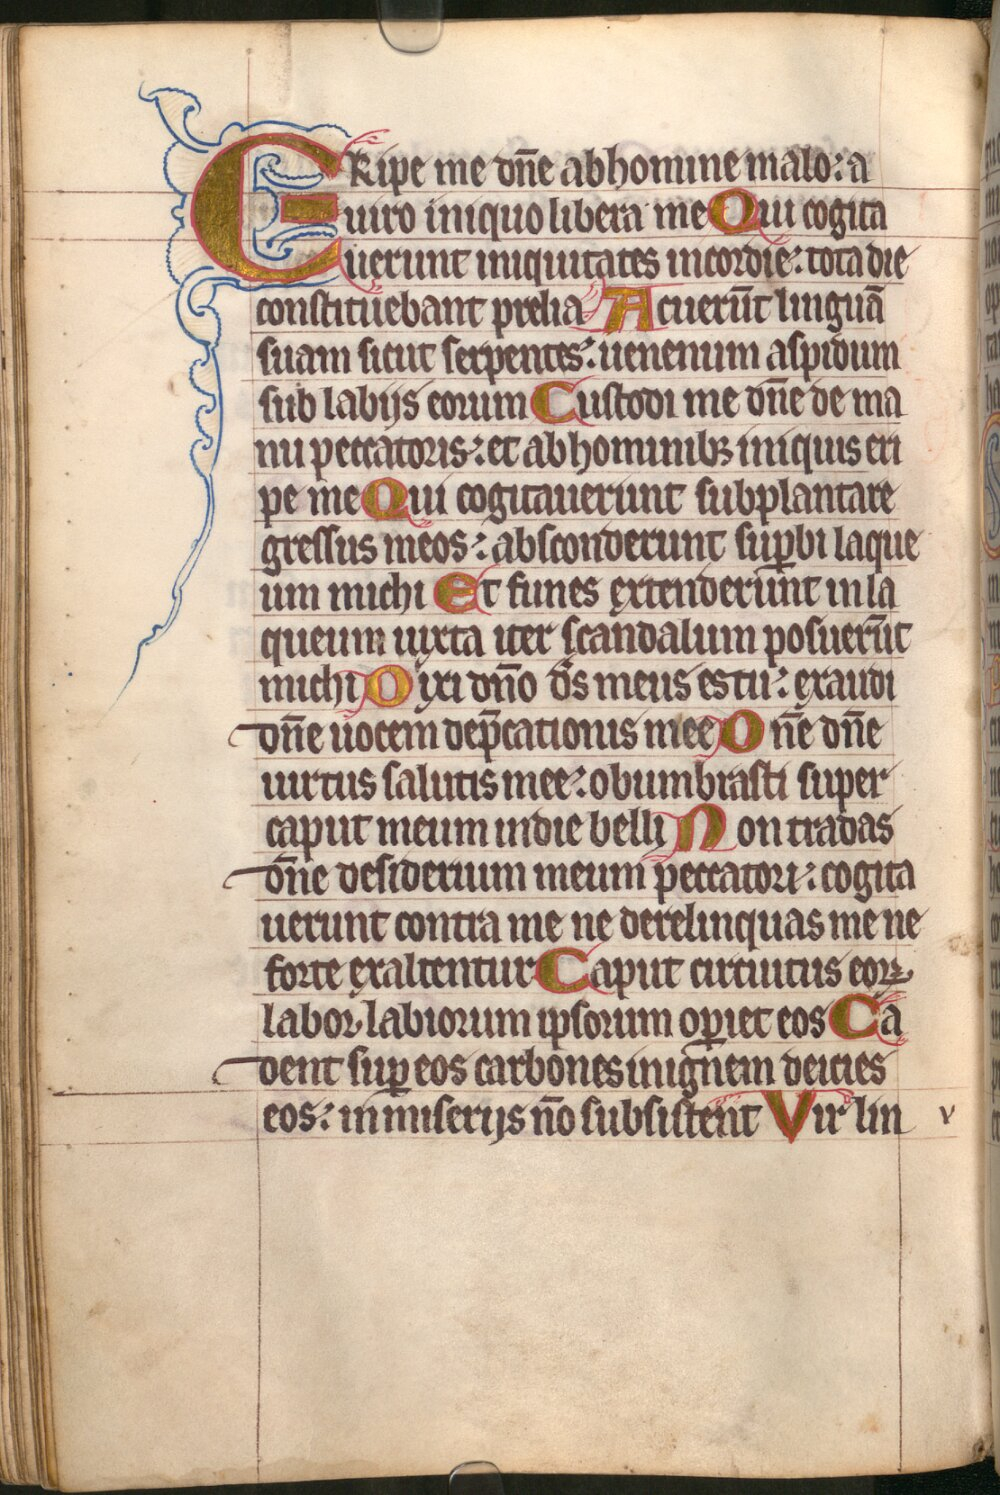 ERipe me dn̄e ab homine malo: a
uiro iniquo libera me Qui cogita
uerunt iniquitates in cordie: tota die
constituebant prelia Acuerūt linguā
suam sicut serpentes: uenenum aspidum
sub labijs eorum Custodi me dn̄e de ma
nu peccatoris: et ab hominibꝫ iniquis eri
pe me Qui cogitauerunt subplantare
gressus meos: absconderunt suꝑbi laque
um michi Et funes extenderunt in la
queum iuxta iter scandalum posuerūt
michi Dixi dn̄o ds̄ meus es tu: exaudi
dn̄e uocem dep̄cationis mee Dn̄e dn̄e
uirtus salutis mee: obumbrasti super
caput meum in die belli Non tradas
dn̄e desiderium meum peccatori: cogita
uerunt contra me ne derelinquas me ne
forte exaltentur Caput circuitus eoꝝ
labor labiorum ipsorum oꝑiet eos Ca
dent suꝑ eos carbones in ignem deicies
eos: in miserijs nō subsistent Vir lin v